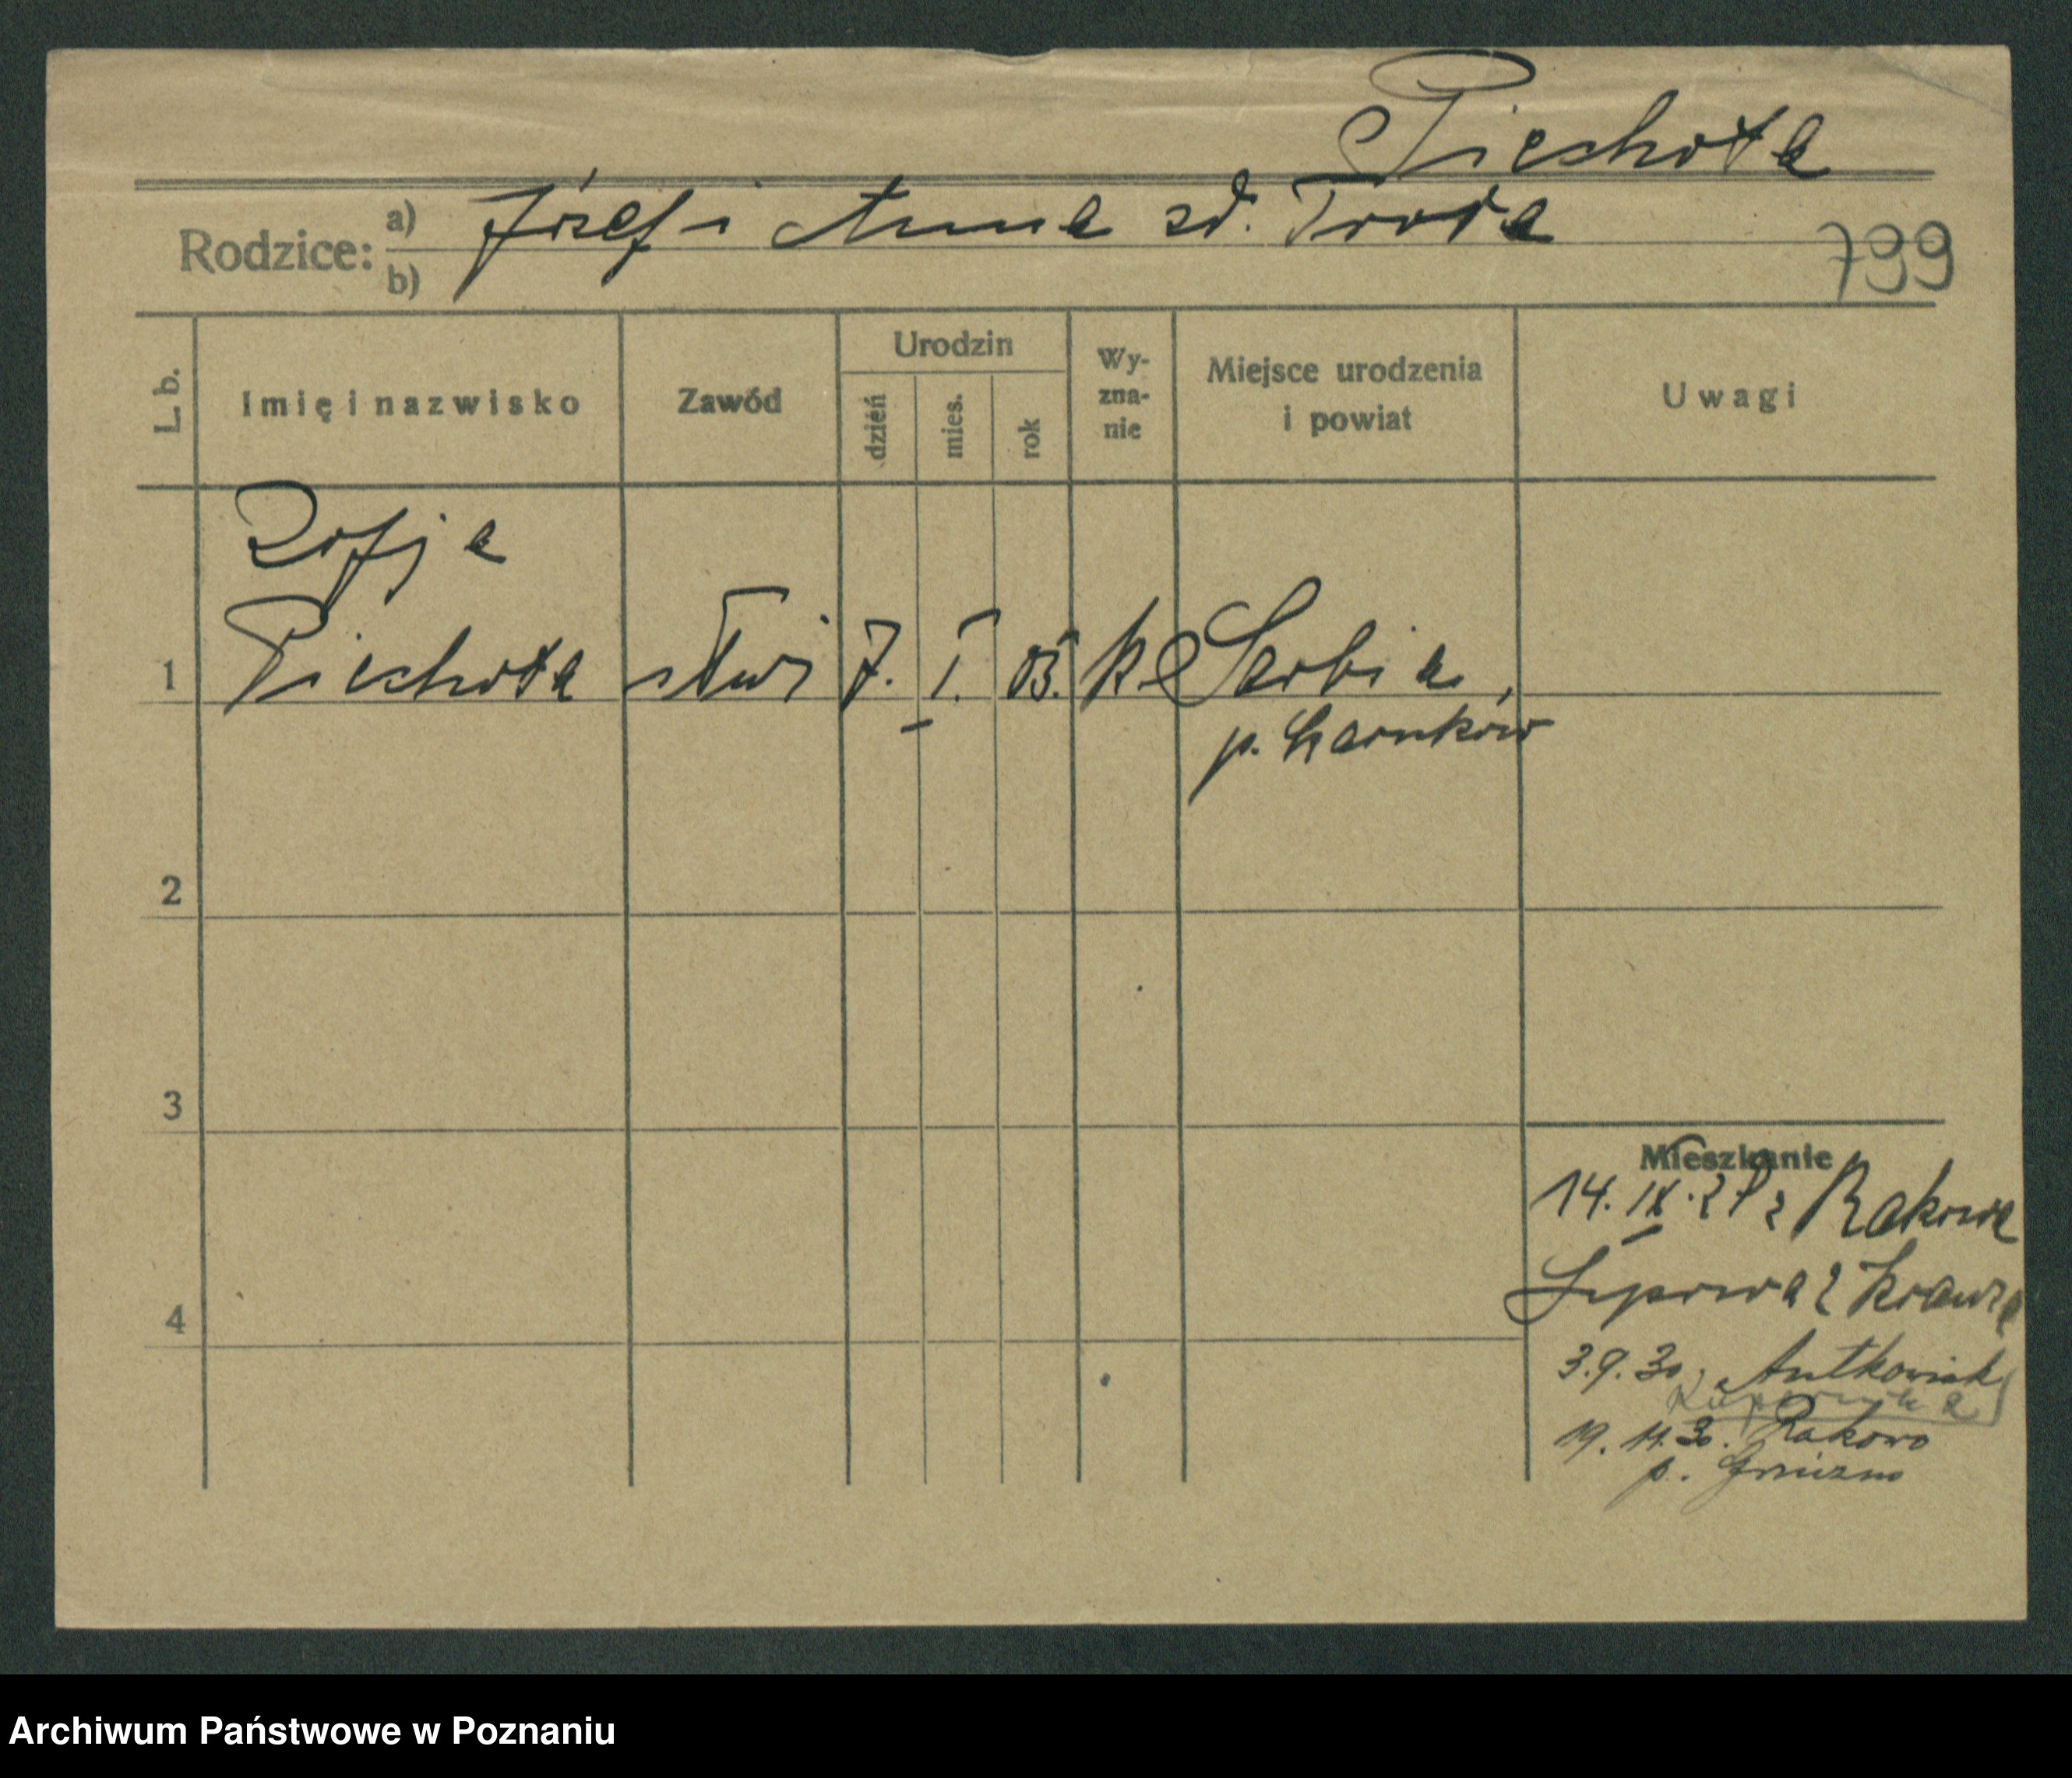 Piechota
Rodzice: a) Józef i Anna zd. Troda
b)
799
L. b. Imię i nazwisko Zawód Urodzin dzień mies. rok Wy-zna-nie Miejsce urodzenia i powiat Uwagi
Zofja
1 Piechota służ 7. I. 03. k Sarbia,
p. Czarnków
2
3
Mieszkanie
14. IX. z Rakowa
4
3.9.30, Antkowiak
19. 11. 30. Rakowo
p. Gniezno
Archiwum Państwowe w Poznaniu